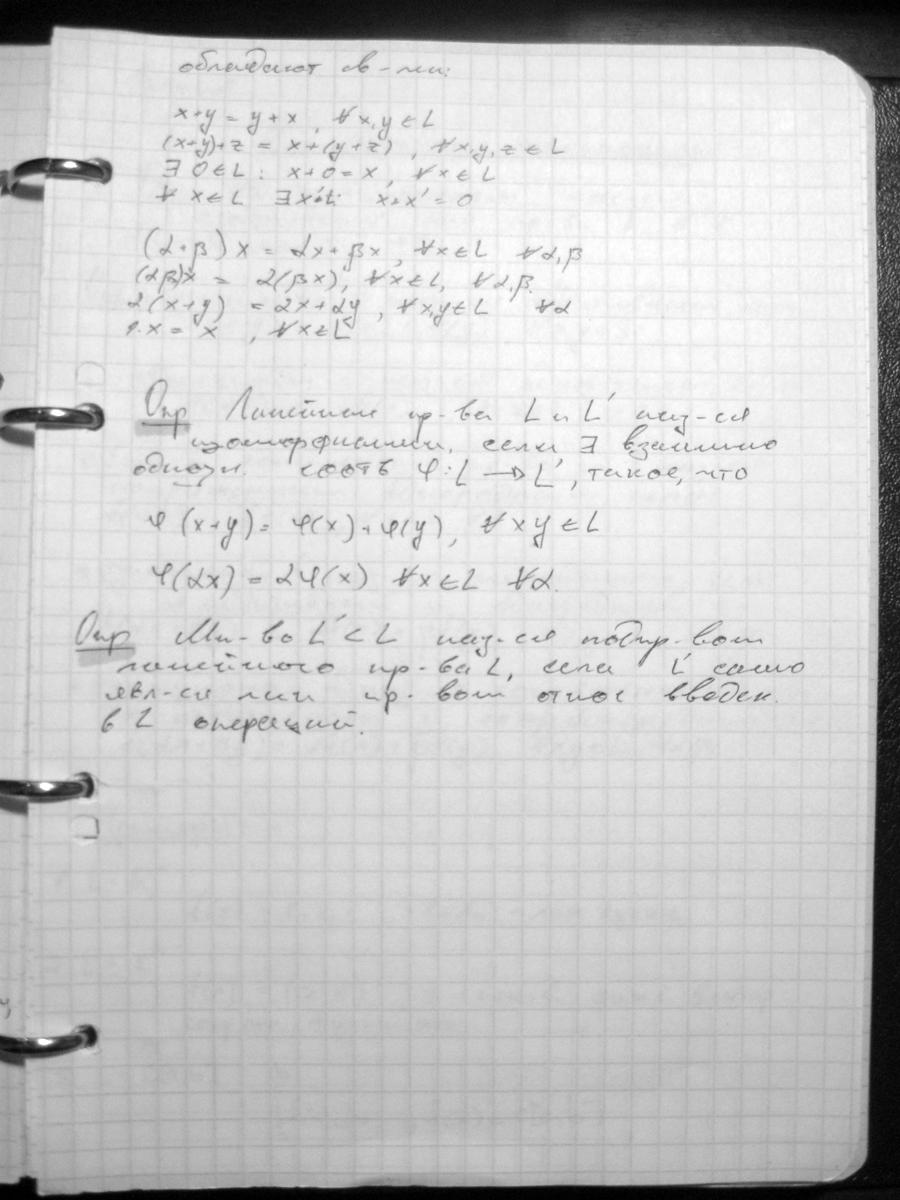 обладают св-ми:
x+y = y+x , ∀x,y ∈ L
(x+y)+z = x+(y+z) , ∀x,y,z ∈ L
∃ 0 ∈ L : x+0 = x, ∀x ∈ L
∀ x ∈ L ∃x' x+x' = 0
(α+β)x = αx+βx, ∀x∈L ∀α,β
(αβ)x = α(βx), ∀x∈L, ∀α,β.
α(x+y) = αx+αy , ∀x,y∈L ∀α
1·x = x , ∀x∈L
Опр Линейные пр-ва L и L' наз-ся
изоморфными, если ∃ взаимно
однозн. соотв φ:L→L', такое, что
φ(x+y)= φ(x)+φ(y), ∀xy∈L
φ(αx) = αφ(x) ∀x∈L ∀α.
Опр Мн-во L'⊂L наз-ся подпр-вом
линейного пр-ва L, если L' само
явл-ся лин пр-вом относ введен.
в L операций.